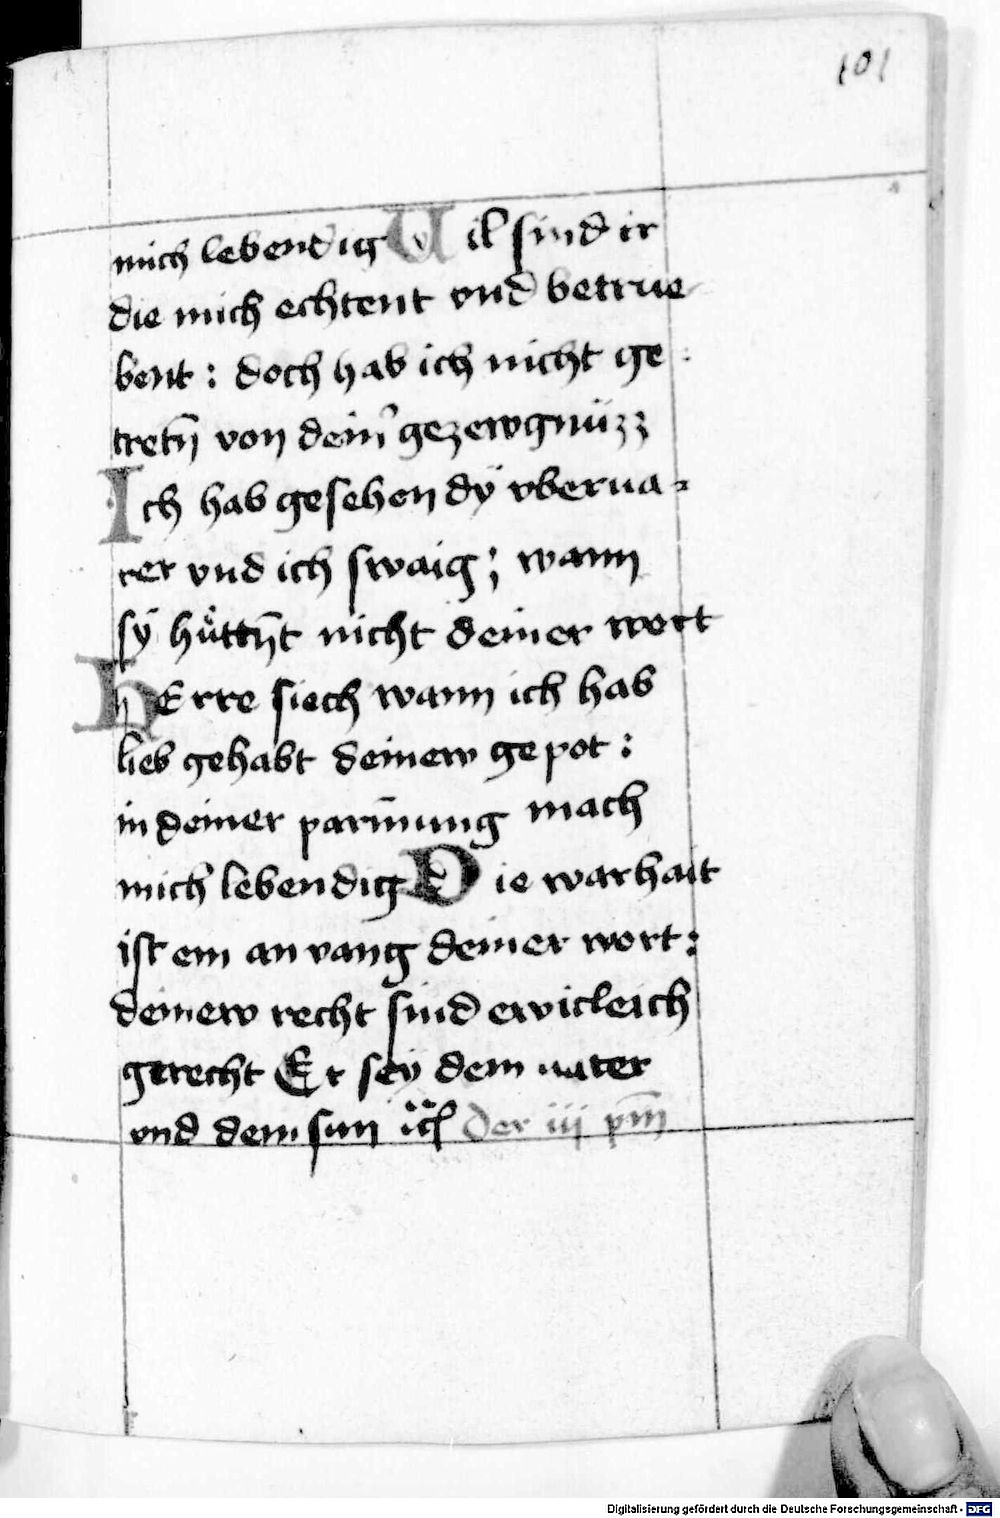 101
mich lebendig Uil sind ir
die mich echtent vnd betrue
bent : doch hab ich nicht ge
tretn̄ von dein̾ gezewgnüzz
Ich hab gesehen dÿ vberua-
rer vnd ich swaig ; wann
sÿ hüttn̄t nicht deiner wort
hErre siech wann ich hab
lieb gehabt deinew gepot :
in deiner parm̄ung mach
mich lebendig Die warhait
ist ein anvang deiner wort :
deinew recht sind ewicleich
gerecht Er sey dem vater
vnd dem sun ꝛc̈ Der iij pm̄
Digitalisierung gefördert durch die Deutsche Forschungsgemeinschaft - DFG